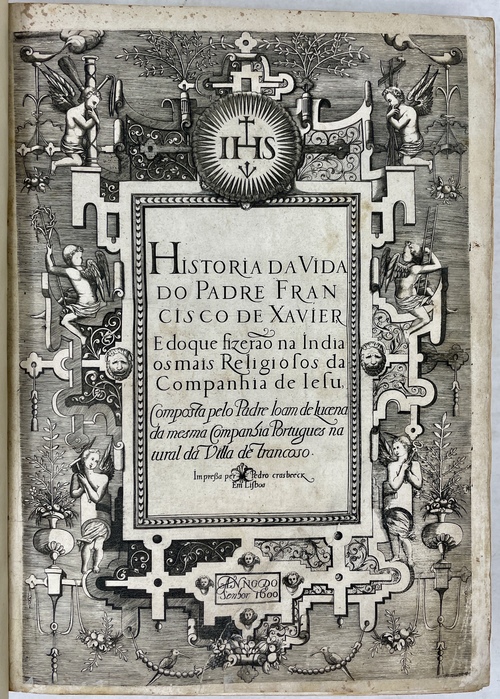 IHS
HISTORIA DA VIDA
DO PADRE FRAN
CISCO DE XAVIER
E do que fizerão na India
os mais Religiosos da
Companhia de Iesu,
Composta pelo Padre Ioam de lucena
da mesma Companhia Portugues na
tural da Villa de trancoso.
Impressa per Pedro crasbeeck
Em Lisboa
ANNO DO
Senhor 1600